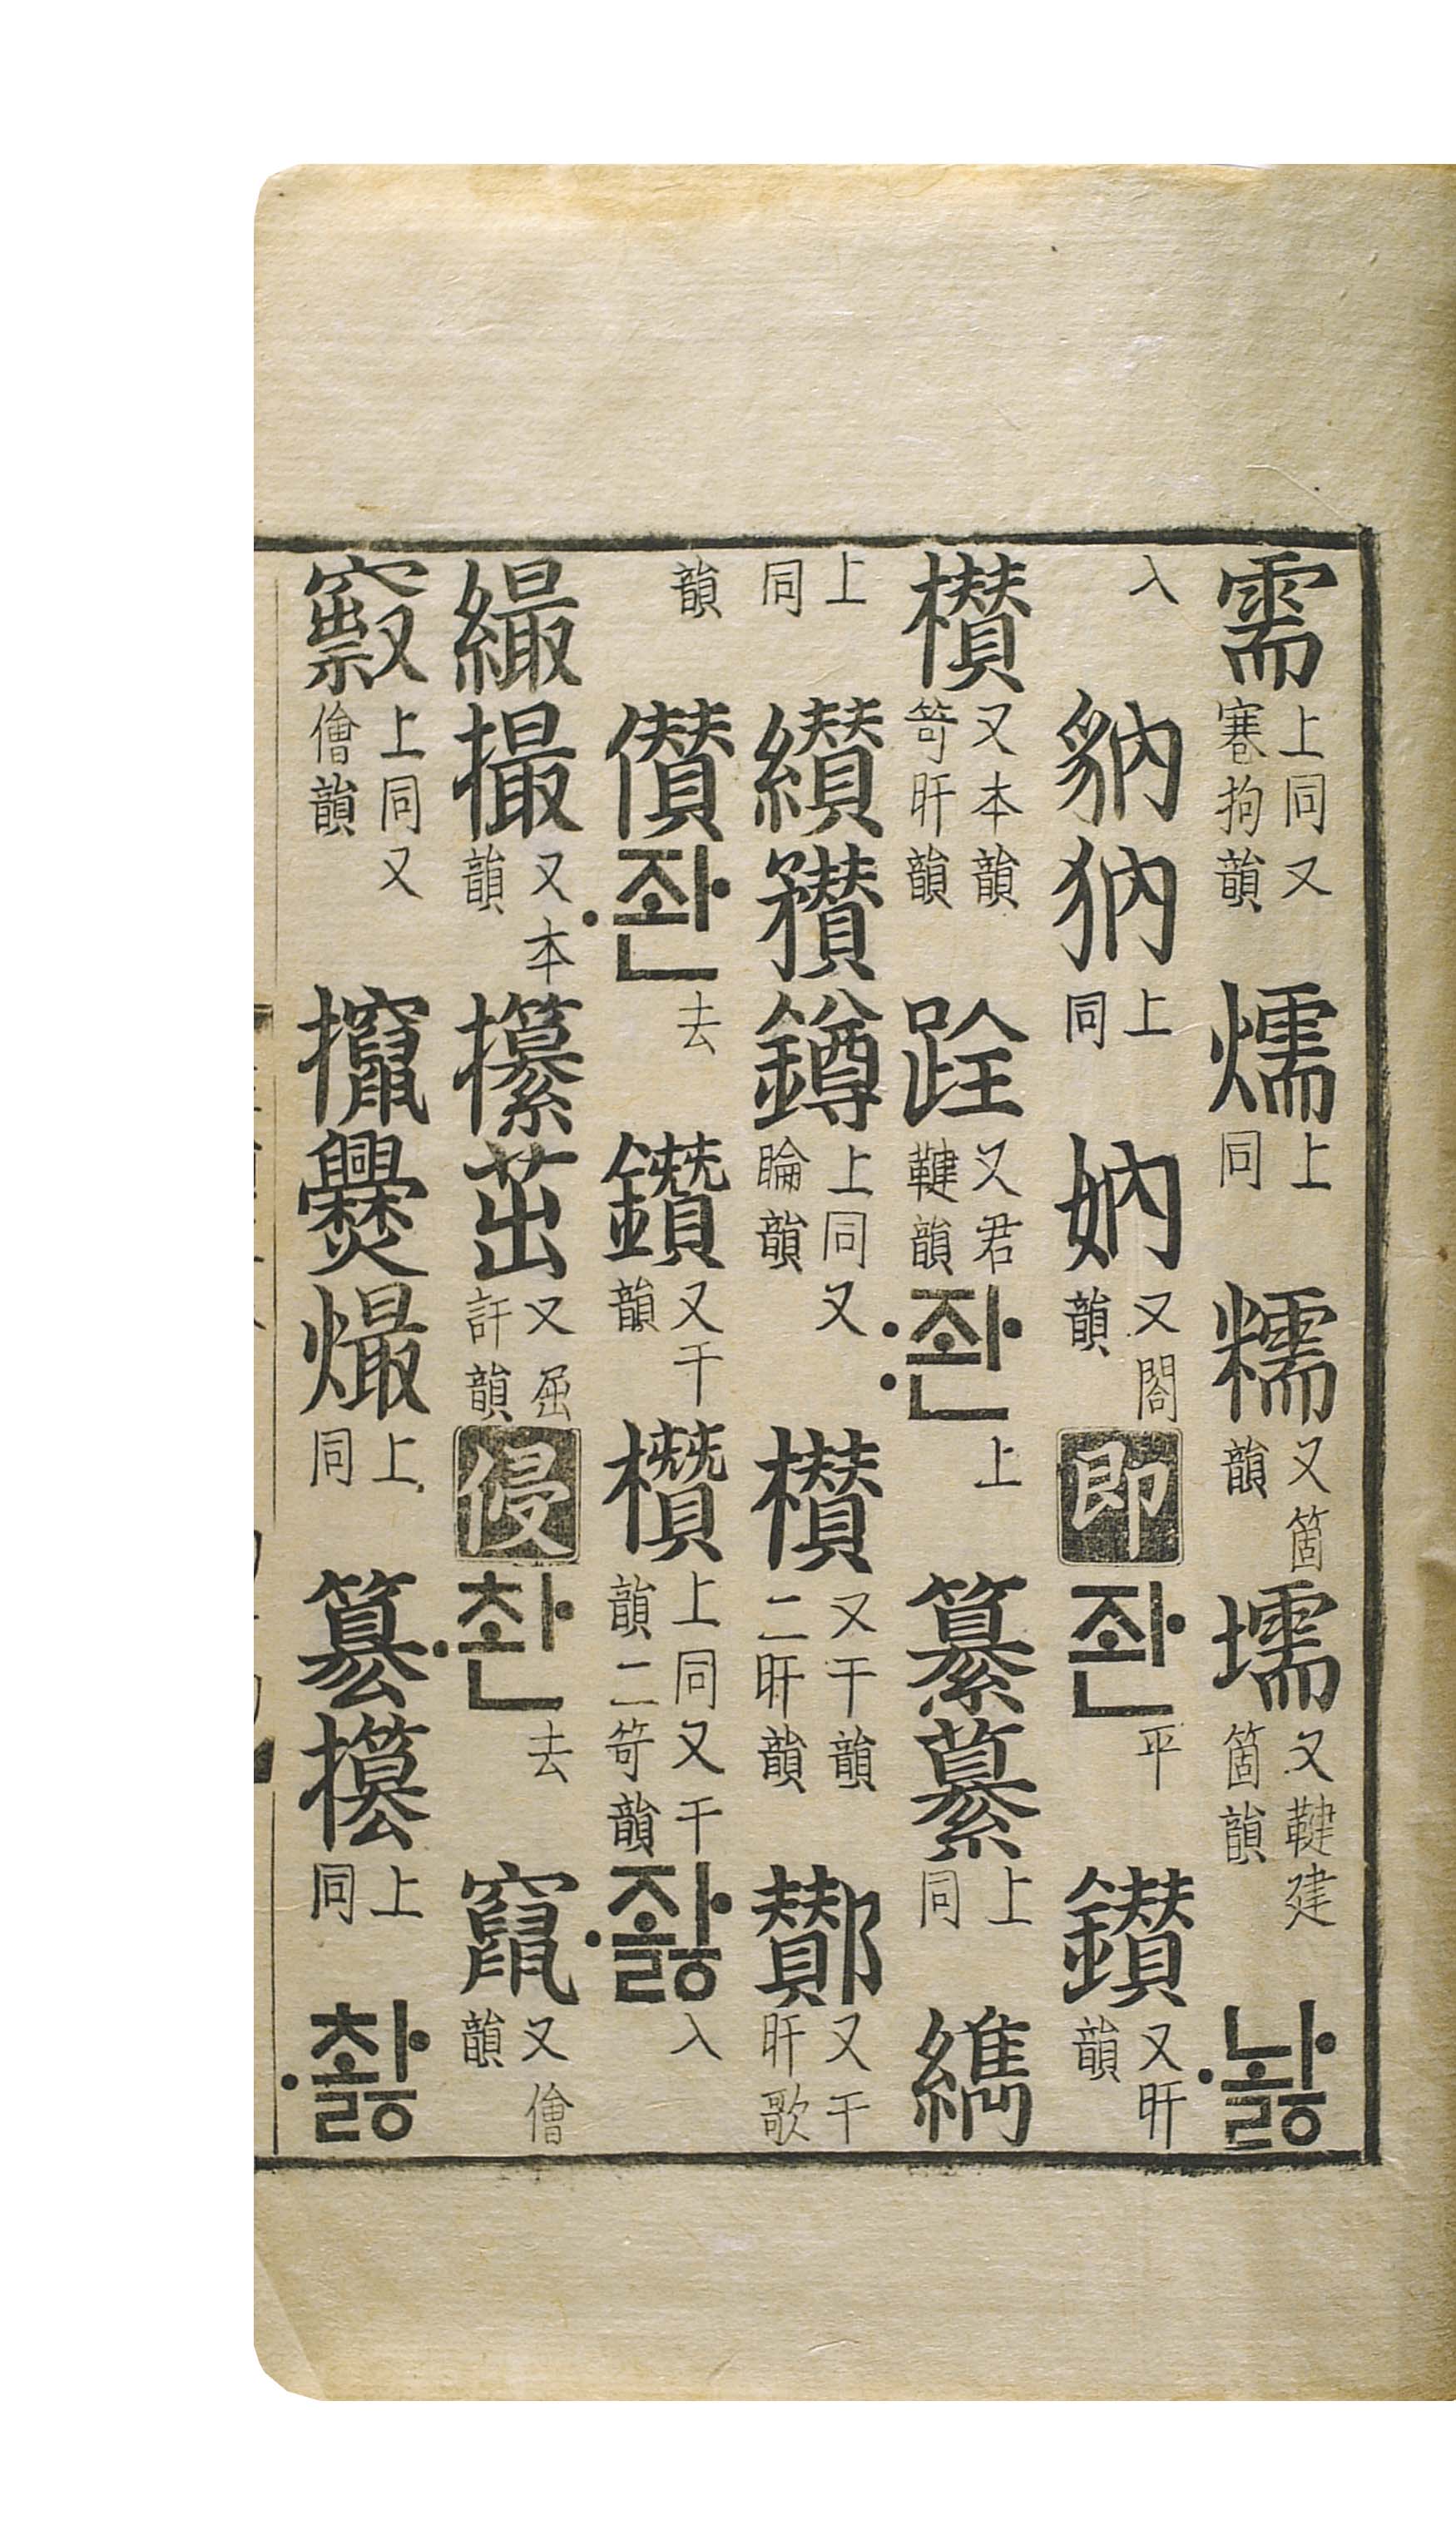 需上同又寋拘韻燸上同糯又箇韻壖又鞬建箇韻·놣ᅙ
入豽上同妠又閤韻即좐平鑚又旰韻
欑又本韻笴旰韻跧又君鞬韻:좐上纂上同
上同纉籫鐏上同又睔韻欑又干韻二旰韻酇又干旰歌
韻儧·좐去鑽又干韻欑上同又干韻二笴韻·좛ᅙ入
繓撮又本韻攥茁又屈訐韻侵·촨去竄又儈韻
上同又儈韻攛爨熶上同簒上同·촬ᅙ